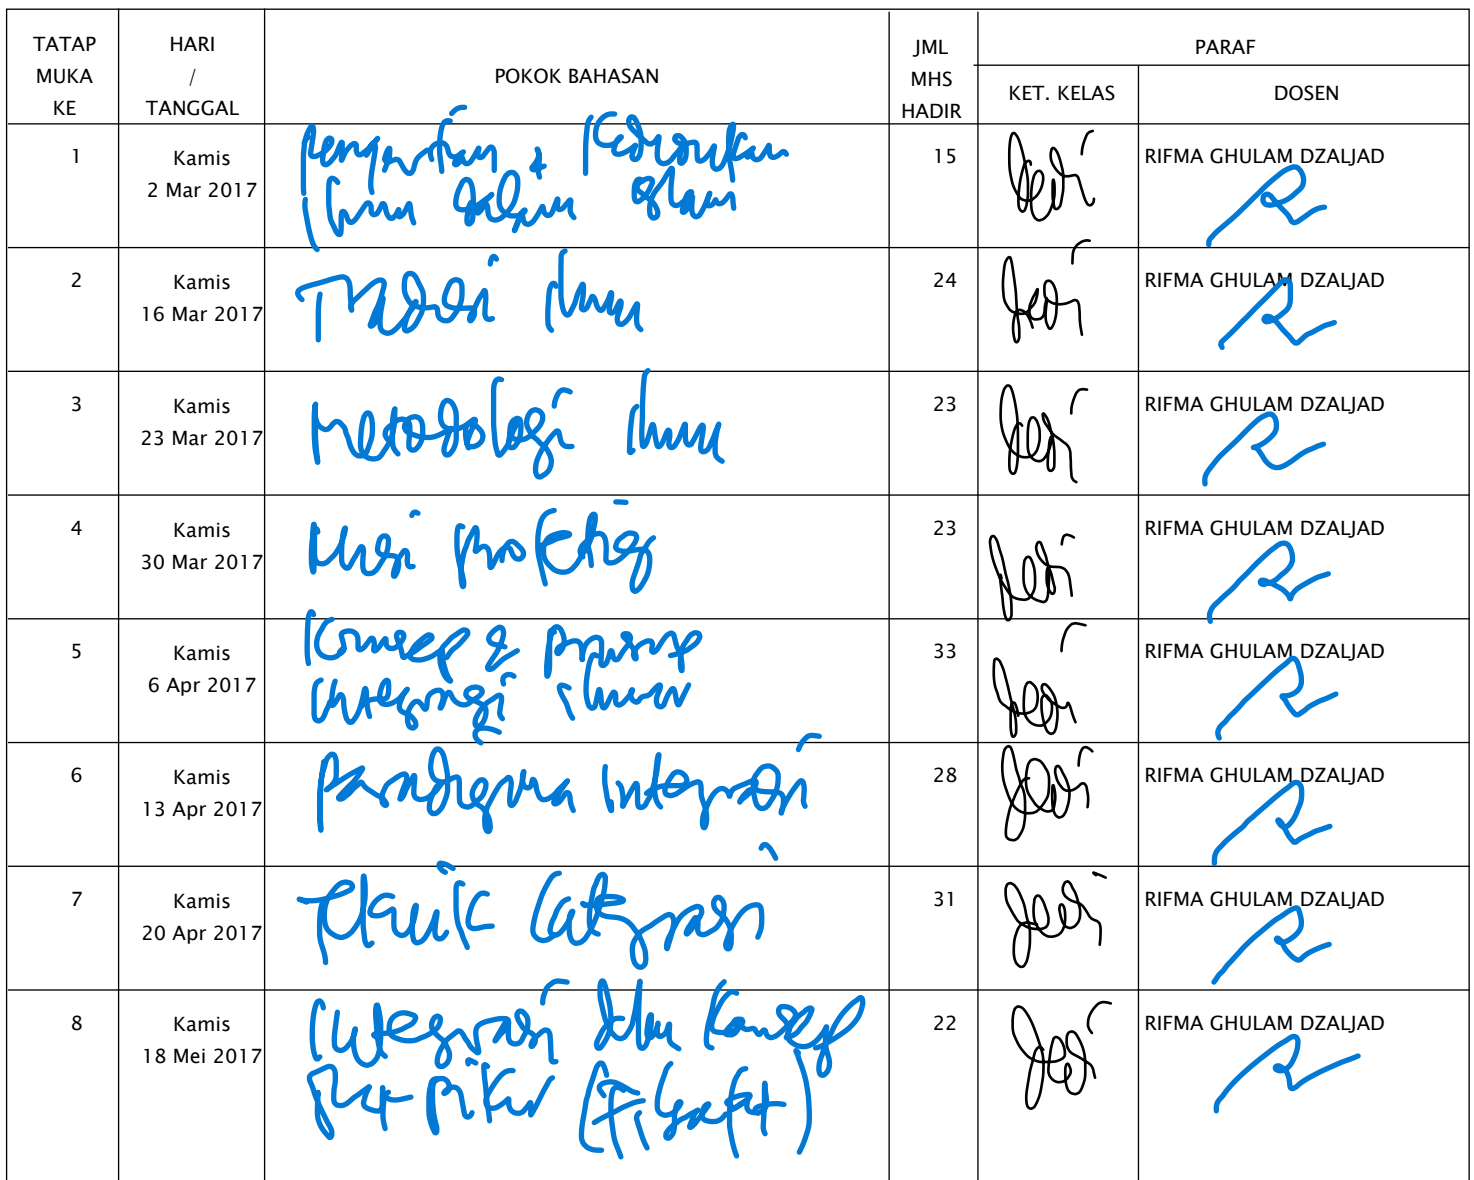 TATAP MUKA KE HARI / TANGGAL POKOK BAHASAN JML MHS HADIR PARAF
KET. KELAS DOSEN
1 Kamis 2 Mar 2017 Pengertian & Kedudukan 15 RIFMA GHULAM DZALJAD
Ilmu dalam Islam
2 Kamis 16 Mar 2017 Tradisi Ilmu 24 RIFMA GHULAM DZALJAD
3 Kamis 23 Mar 2017 Metodologi Ilmu 23 RIFMA GHULAM DZALJAD
4 Kamis 30 Mar 2017 23 RIFMA GHULAM DZALJAD
5 Kamis 6 Apr 2017 Konsep & prinsip 33 RIFMA GHULAM DZALJAD
integrasi ilmu
6 Kamis 13 Apr 2017 Paradigma Integrasi 28 RIFMA GHULAM DZALJAD
7 Kamis 20 Apr 2017 Teknik Integrasi 31 RIFMA GHULAM DZALJAD
8 Kamis 18 Mei 2017 Integrasi dlm Konsep 22 RIFMA GHULAM DZALJAD
pikir (Filsafat)